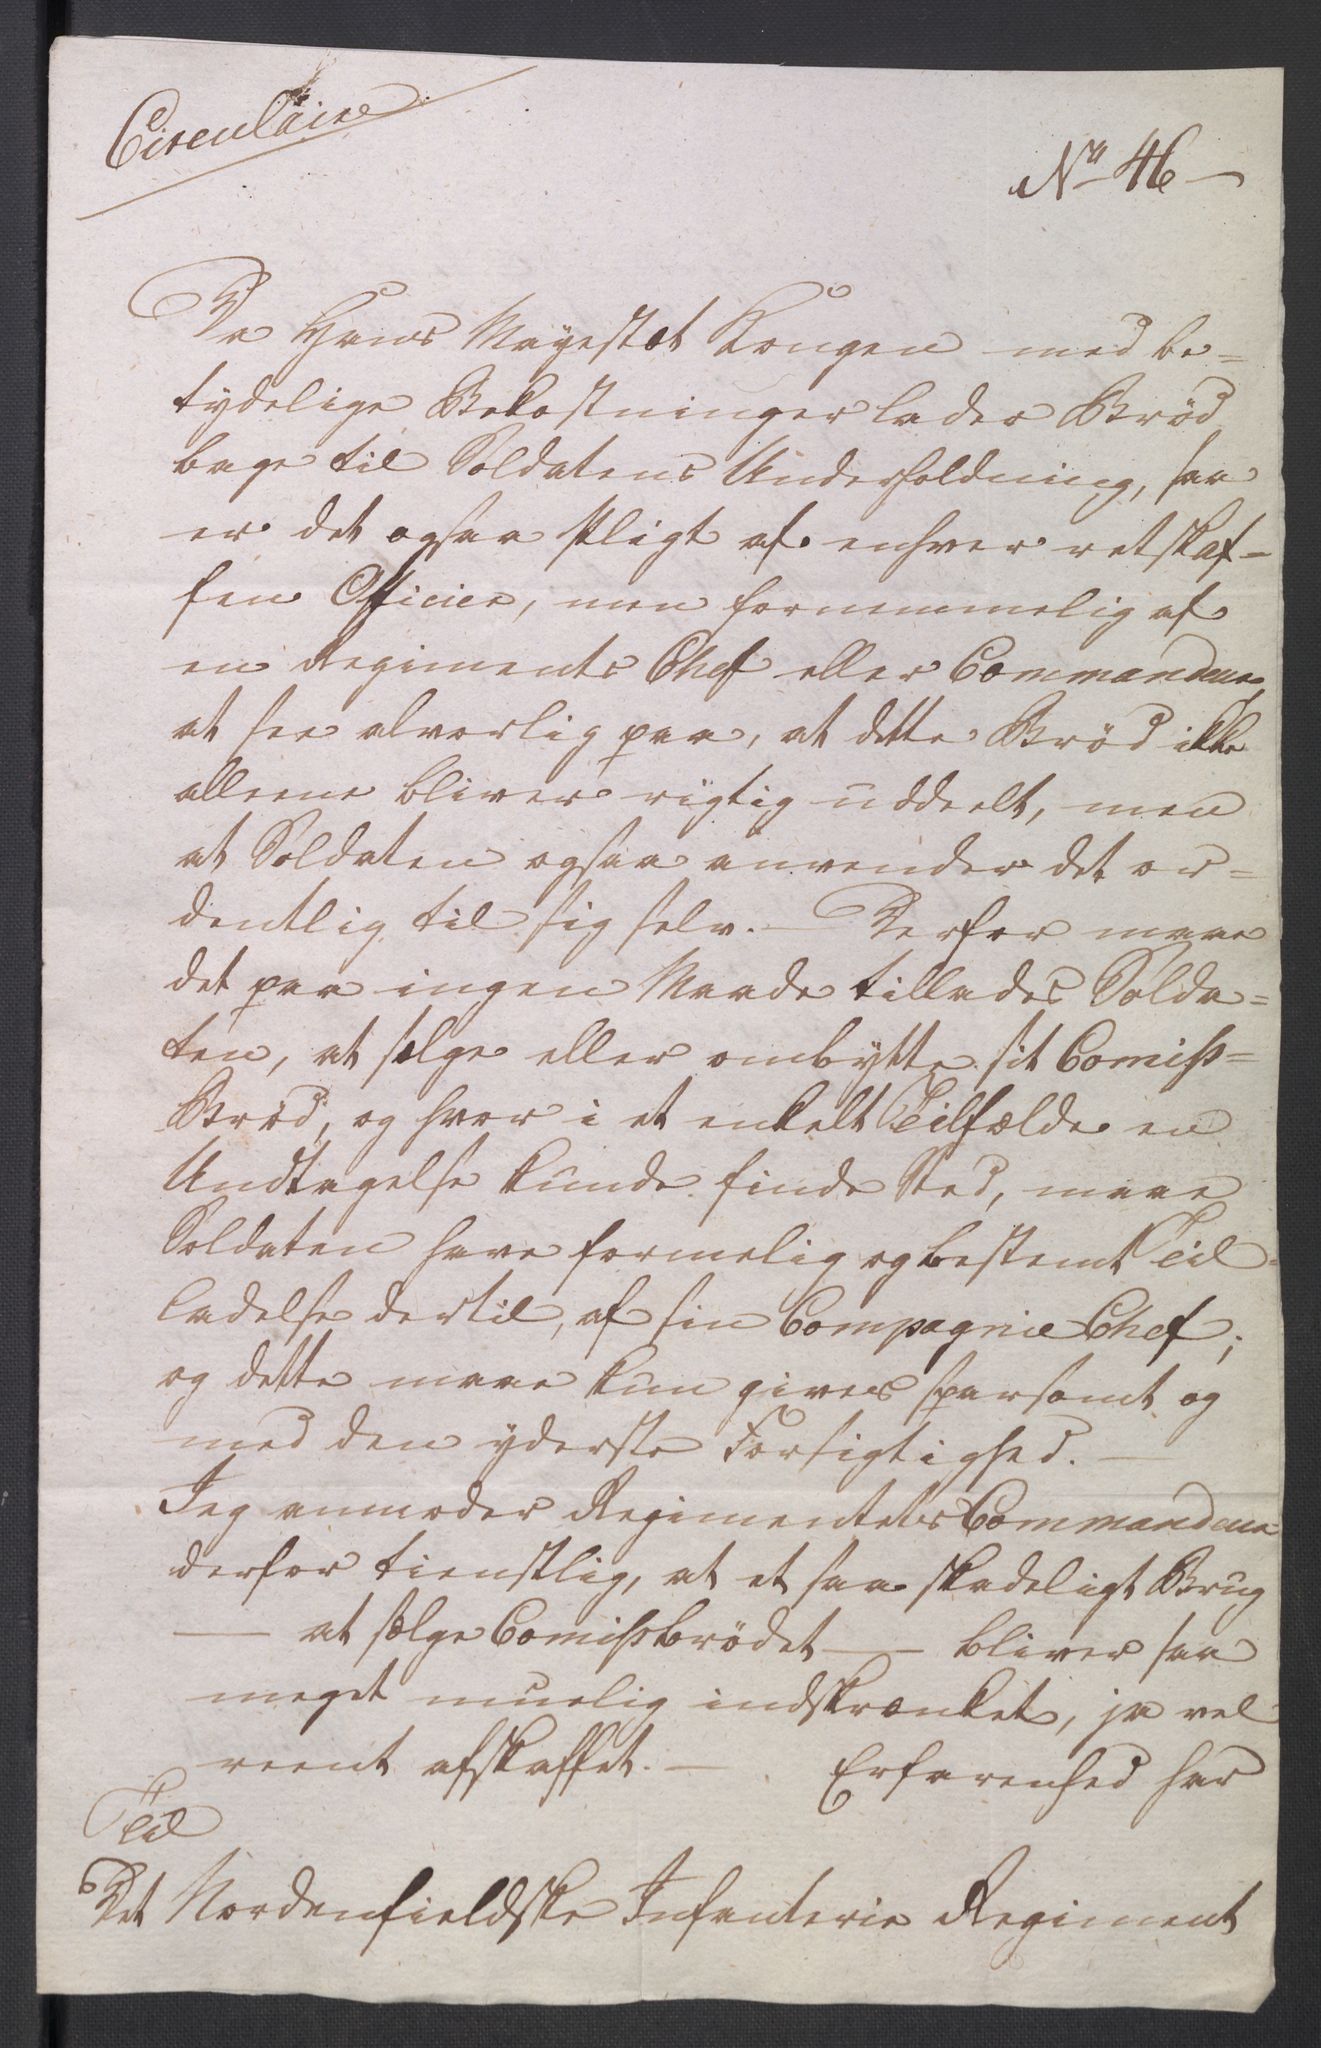 Circulaire
No 46 –
Da Hans Mayestæt Kongen med be=
tydelige Bekostninger lader Brød
bage til Soldatens Underholdning, saa
er det ogsaa Pligt af enhver retskaf-
fen Officier, men fornemmelig af
en Regiments Chef eller Commandeur,
at see alvorlig paa, at dette Brød ikke
alleene bliver rigtig uddeelt, men
at Soldaten ogsaa anvender det or=
dentlig til sig selv. — Derfor maae
det paa ingen Maade tillades Solda=
ten, at sælge eller ombytte sit Comiss=
Brød, og hvor i et enkelt Tilfælde en
Undtagelse kunde finde Sted, maae
Soldaten have formelig og bestemt Til-
ladelse dertil, af sin Compagnie Chef;
og dette maae kun gives sparsomt og
med den yderste Forsigtighed. —
Jeg anmoder Regimentets Commandeur
derfor tienstlig, at et saa skadeligt Brug
— at sælge Comissbrødet — bliver saa
meget muelig indskrænket, ja vel
reent afskaffet. — Erfarenhed har
Til
Det Nordenfieldske Infanterie Regiment